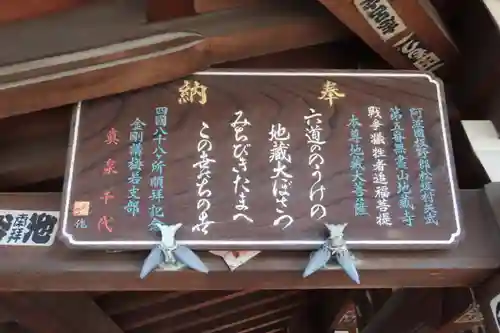 奉納
阿波國板野郡松坂村矢武
第五番無盡山地蔵寺
戦争犠牲者追福菩提
本尊地蔵大菩薩
六道ののうけの
地蔵大ぼさつ
みちびきたまへ
この世のちの世
四國八十八ヶ所順拝記念
金剛講梅若支部
真泉千代
池